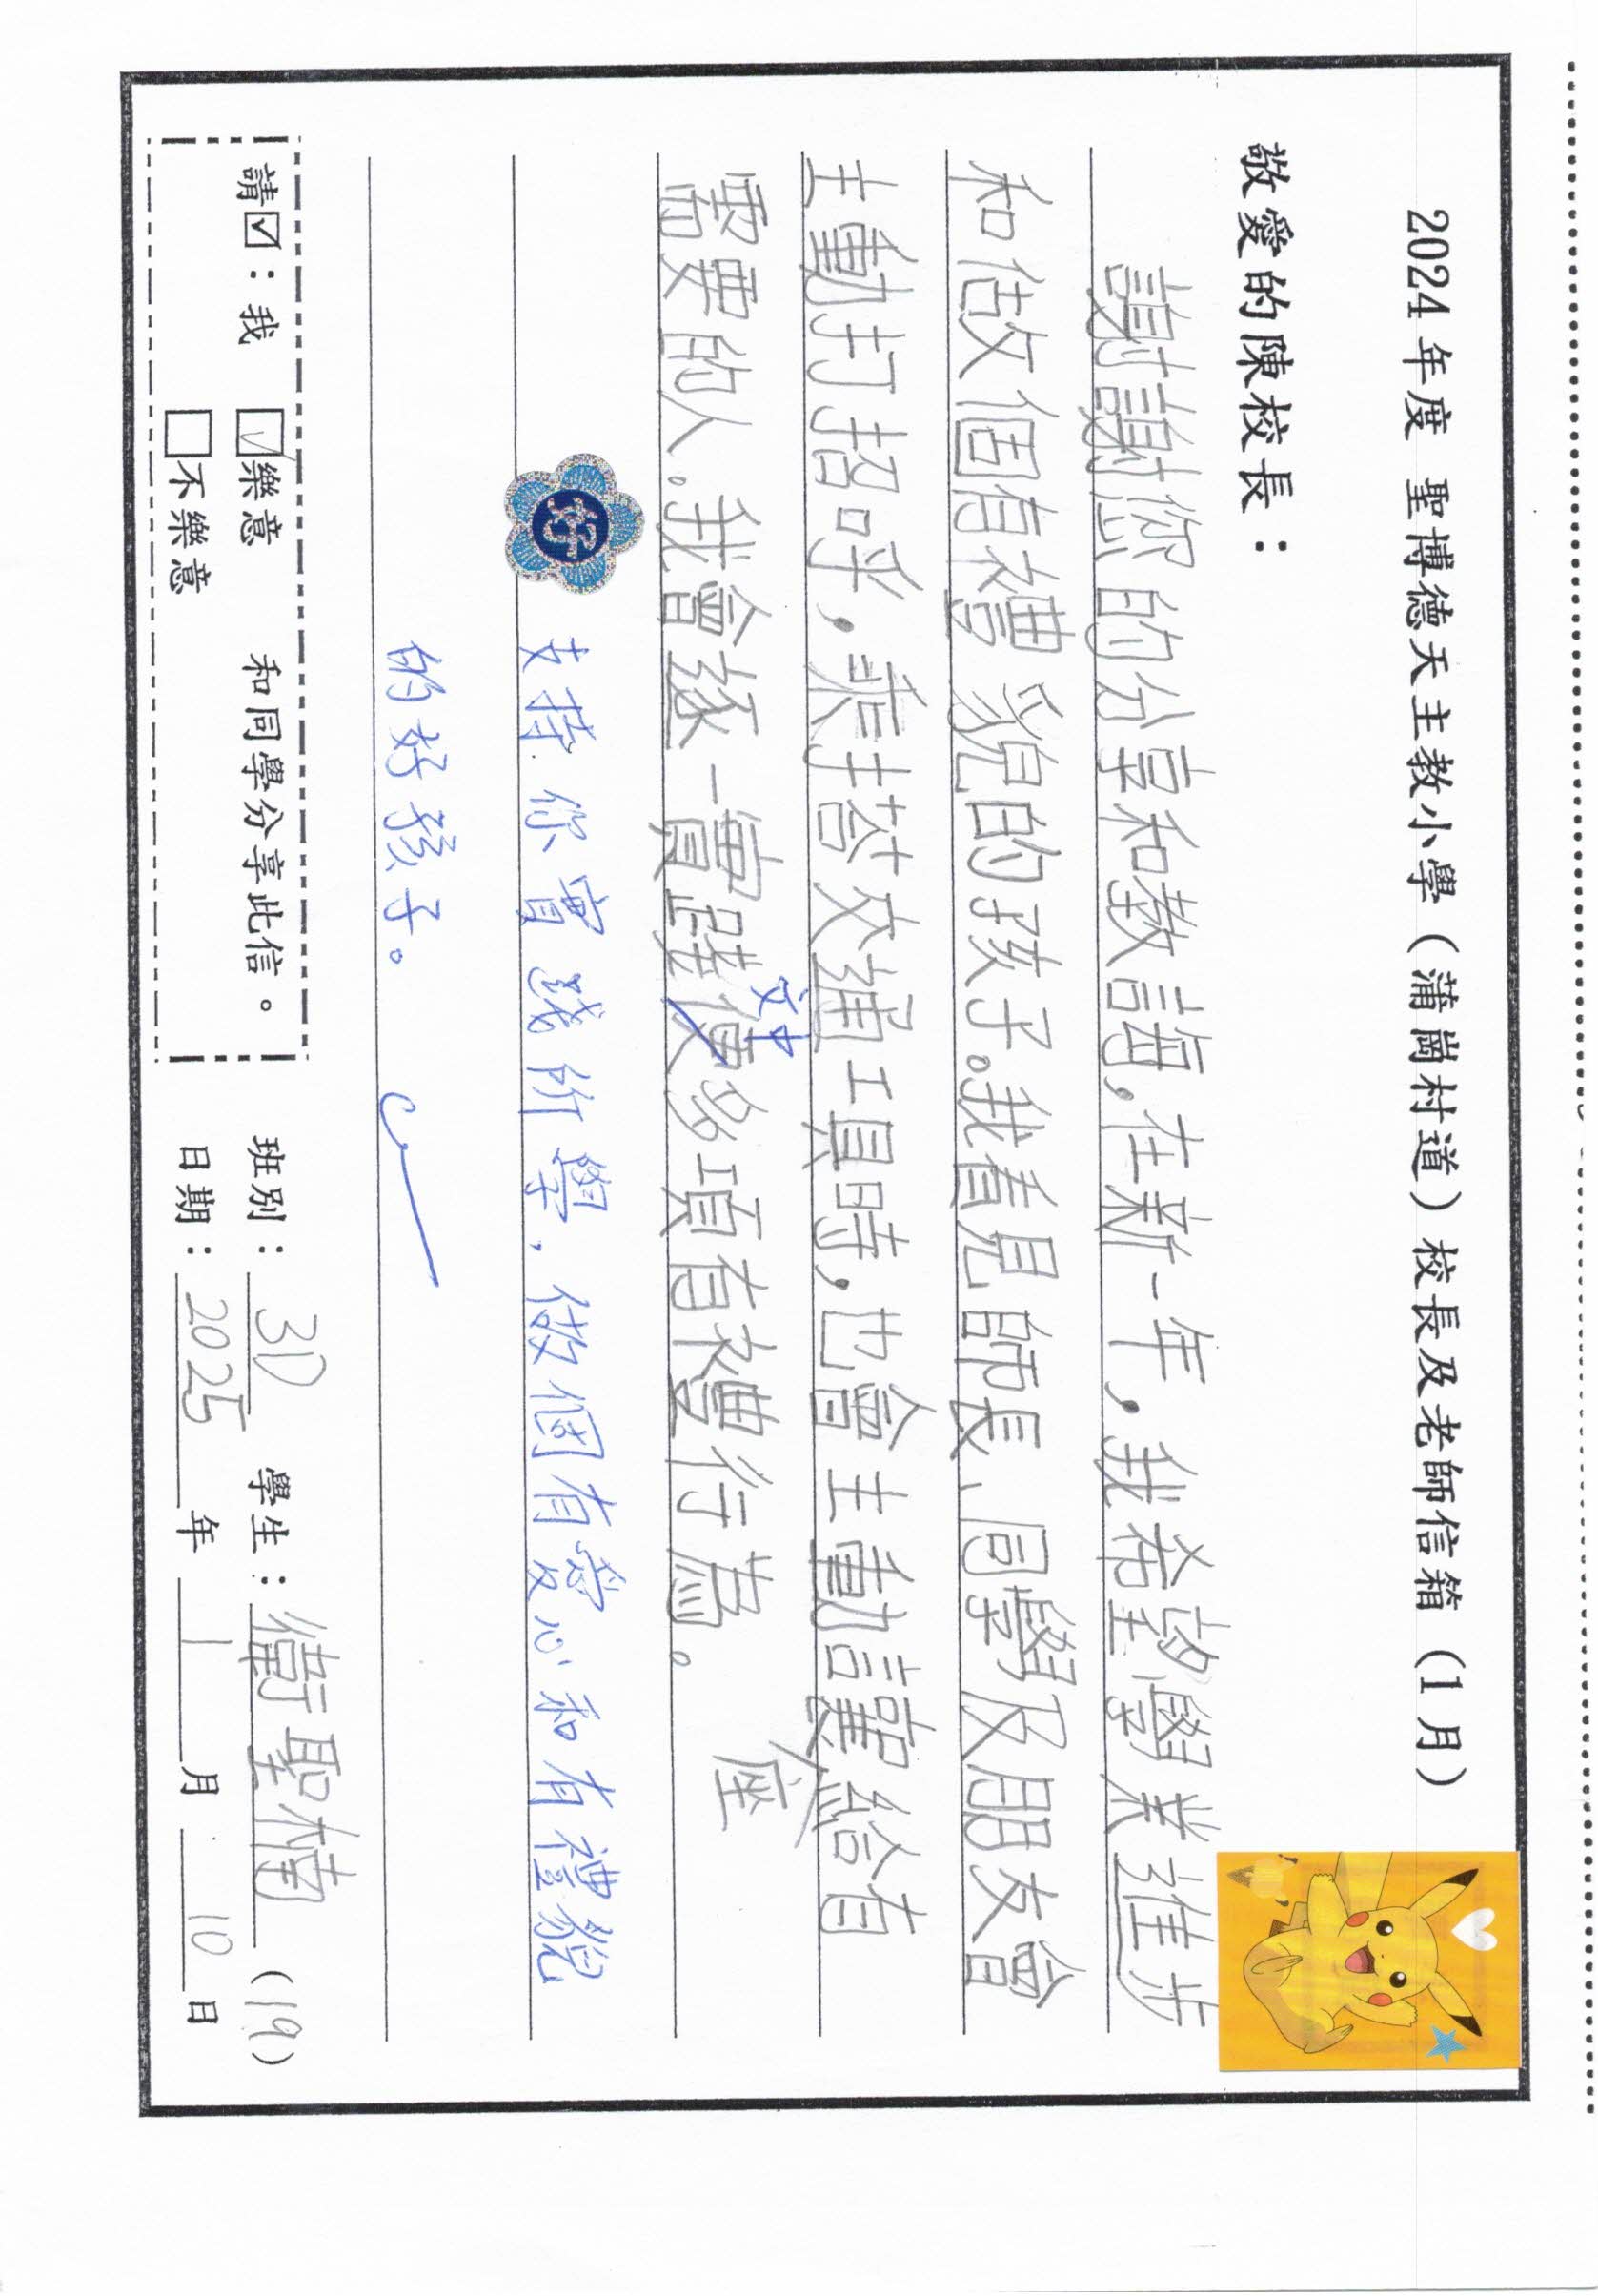 2024年度 聖博德天主教小學（蒲崗村道）校長及老師信箱（1月）
敬愛的陳校長：
謝謝您的分享和教誨，在新一年，我希望學業進步
和做個有禮貌的孩子。我看見師長、同學及朋友會
主動打招呼，乘搭交通工具時，也會主動讓座給有
需要的人。我會逐一實踐文中多項有禮行為。
好
支持你實踐所學，做個有愛心和有禮貌
的好孩子。
請☑：我 ☑樂意 和同學分享此信。
□不樂意
班別：3D 學生：衛聖楠（19）
日期：2025年1月10日